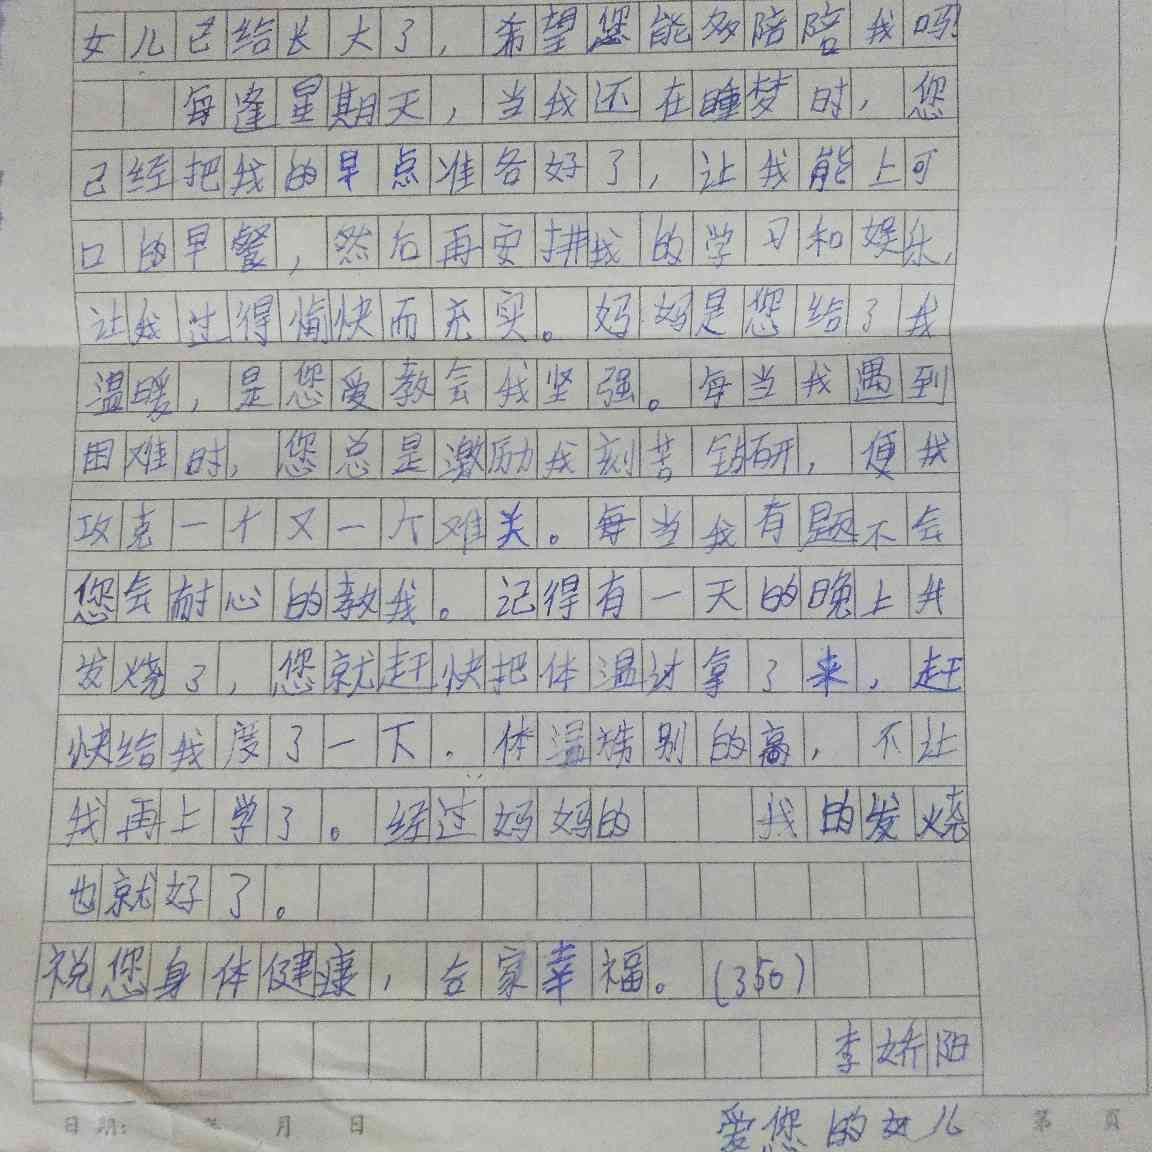 女儿已给长大了，希望您能多陪陪我吗！
每逢星期天，当我还在睡梦时，您
己经把我的早点准各好了，让我能上可
口的早餐，然后再安排我的学习和娱乐，
让我过得愉快而充实。妈妈是您给了我
温暖，是您爱教会我坚强。每当我遇到
困难时，您总是激励我刻苦钻研，使我
攻克一个又一个难关。每当我有题不会
您会耐心的教我。记得有一天的晚上我
发烧了，您就赶快把体温计拿了来，赶
快给我度了一下．体温特别的高，不让
我再上学了。经过妈妈的 我的发烧
也就好了。
祝您身体健康，合家幸福。(350)
李娇阳
爱您的女儿
日期： 年 月 日 第 頁